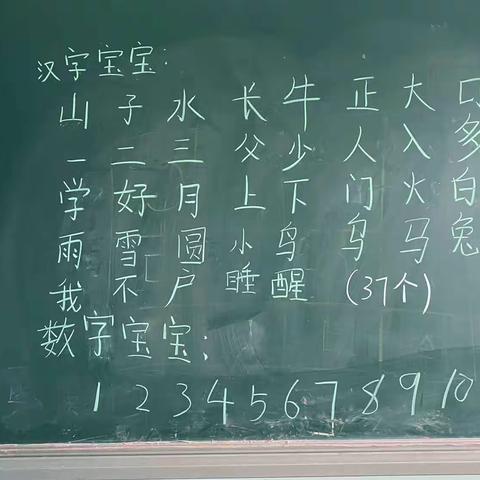 汉字宝宝：
山 子 水 长 牛 正 大 口
一 二 三 父 少 人 入 多
学 好 月 上 下 门 火 白
雨 雪 圆 小 鸟 乌 马 兔
我 不 户 睡 醒 (37个)
数字宝宝：
1 2 3 4 5 6 7 8 9 10